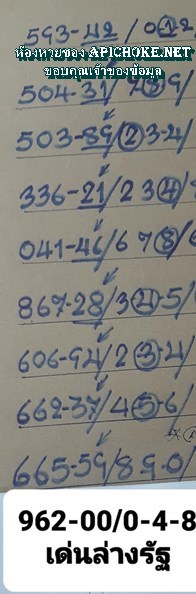 593-42/0①2
ห้องหายของ APICHOKE.NET
ขอบคุณเจ้าของข้อมูล
504-31/7⑧9/
503-89/②3-4/
336-21/2 3④/
041-46/6 7⑧/
867-28/3④-5/
606-94/2③-4/
662-37/4⑤-6/
665-59/8 9-0/
962-00/0-4-8
เด่นล่างรัฐ